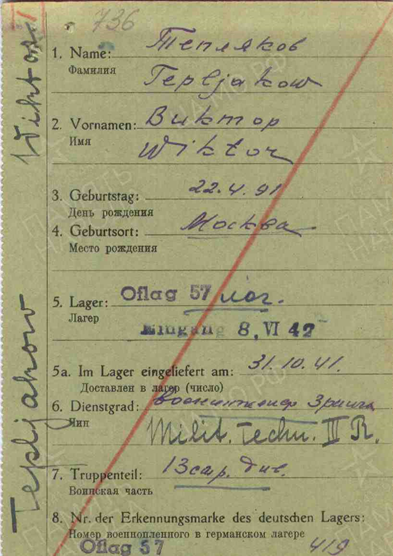 736
1. Name: Тепляков
Фамилия
Tepljakow
2. Vornamen: Виктор
Имя
Wiktor
3. Geburtstag: 22.4.91
День рождения
4. Geburtsort: Москва
Место рождения
5. Lager: Oflag 57
Лагер
Eingang 8. VI 42
5a. Im Lager eingeliefert am: 31.10.41.
Доставлен в лагер (число)
6. Dienstgrad: Военинженер 3 ранга
Чин
Milit. Techn. III R.
7. Truppenteil: 13 сар. див.
Воинская часть
8. Nr. der Erkennungsmarke des deutschen Lagers:
Номер военнопленного в германском лагере
Oflag 57 419
Tepljakow Wiktor